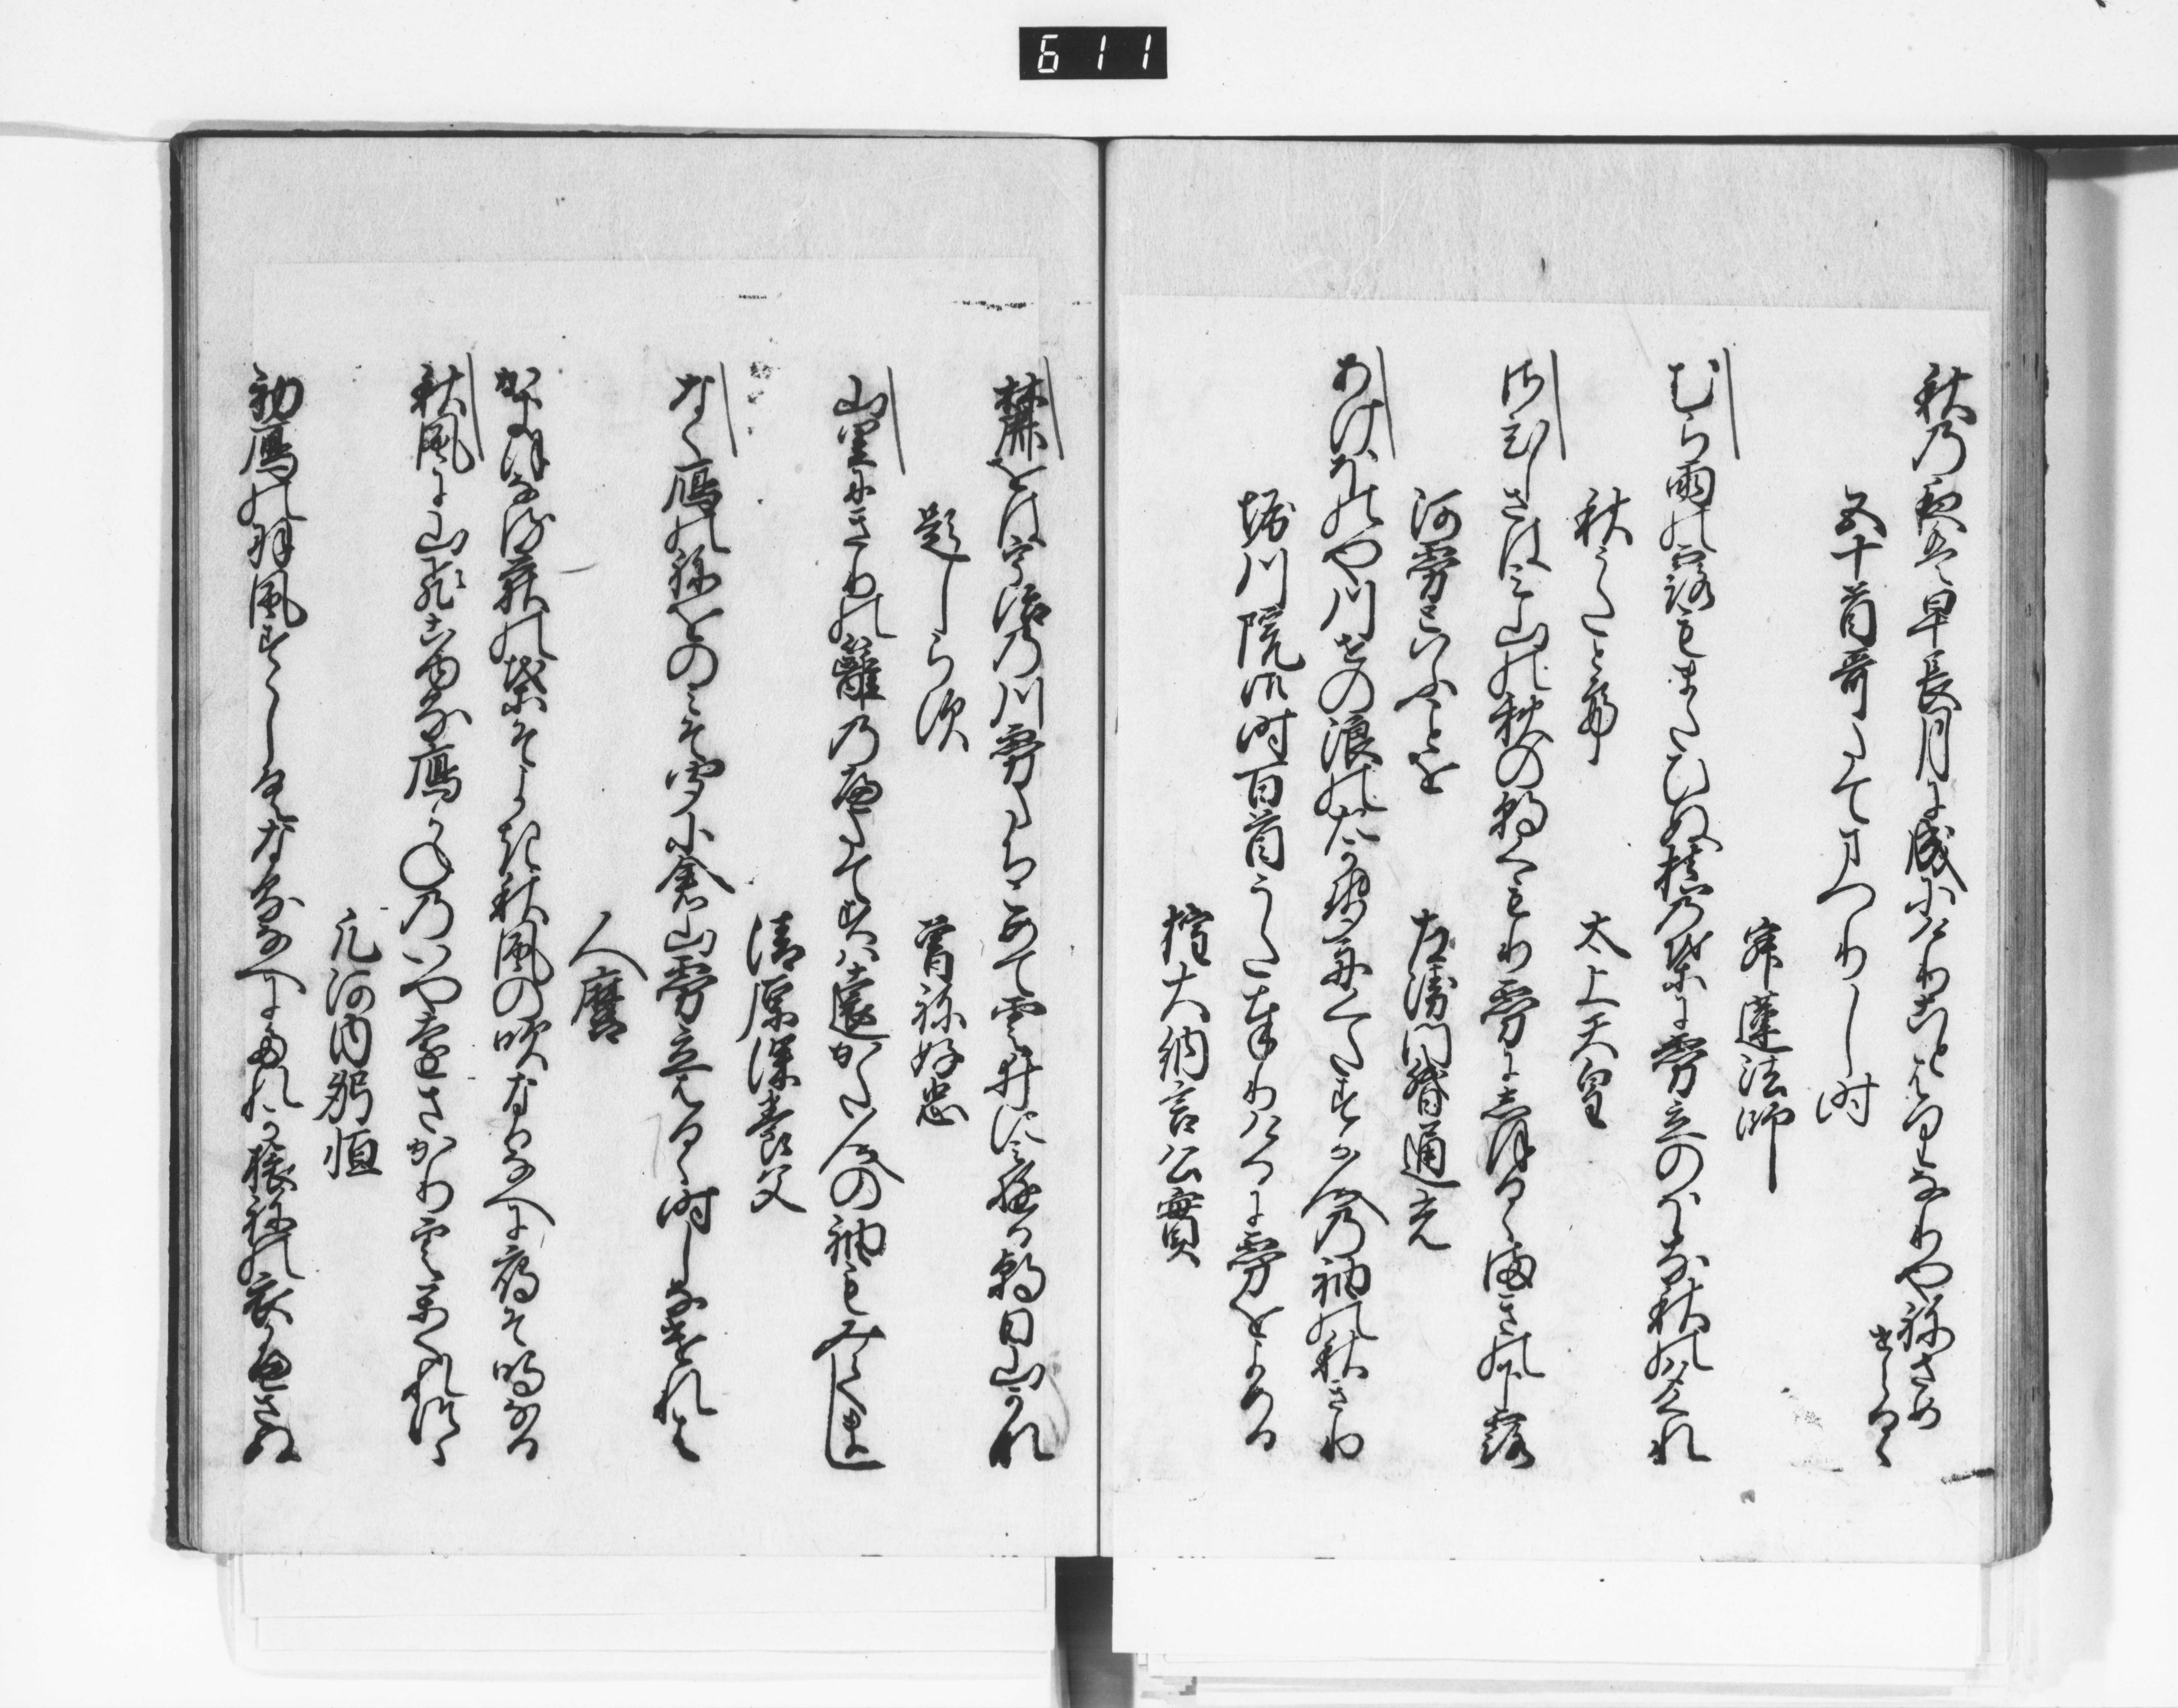 611
秋の夜は早長月に成にけりことはりなりやねさめ
せらるゝ
五十首哥たてまつりし時
寂蓮法師
むら雨の露もまたひぬ槙の葉に霧立のほる秋の夕くれ
秋うたとて
太上天皇
さひしさはみ山の秋の朝くもり霧にしほるゝ槙の下露
河霧といふことを
左衛門督通光
あけほのや川せの浪のたかせ舟くたすか人の袖の秋きり
堀川院御時百首うたたてまつりけるに霧をよめる
権大納言公實
麓をは宇治の川霧たちこめて雲井に見ゆる朝日山かな
題しらす
曽祢好忠
山里にきりの籬のへたてすは遠かた人の袖もみてまし
清原深養父
なく鴈のねをのみそ聞小倉山霧立はるゝ時しなけれは
人麿
かきほなる荻の葉そよき秋風の吹なるなへに鴈そ鳴なる
秋風に山飛こゆる鴈かねのいや遠さかり雲かくれつゝ
凡河内躬恒
初鴈の羽風すゝしくなるなへにたれか旅ねの衣かへさぬ